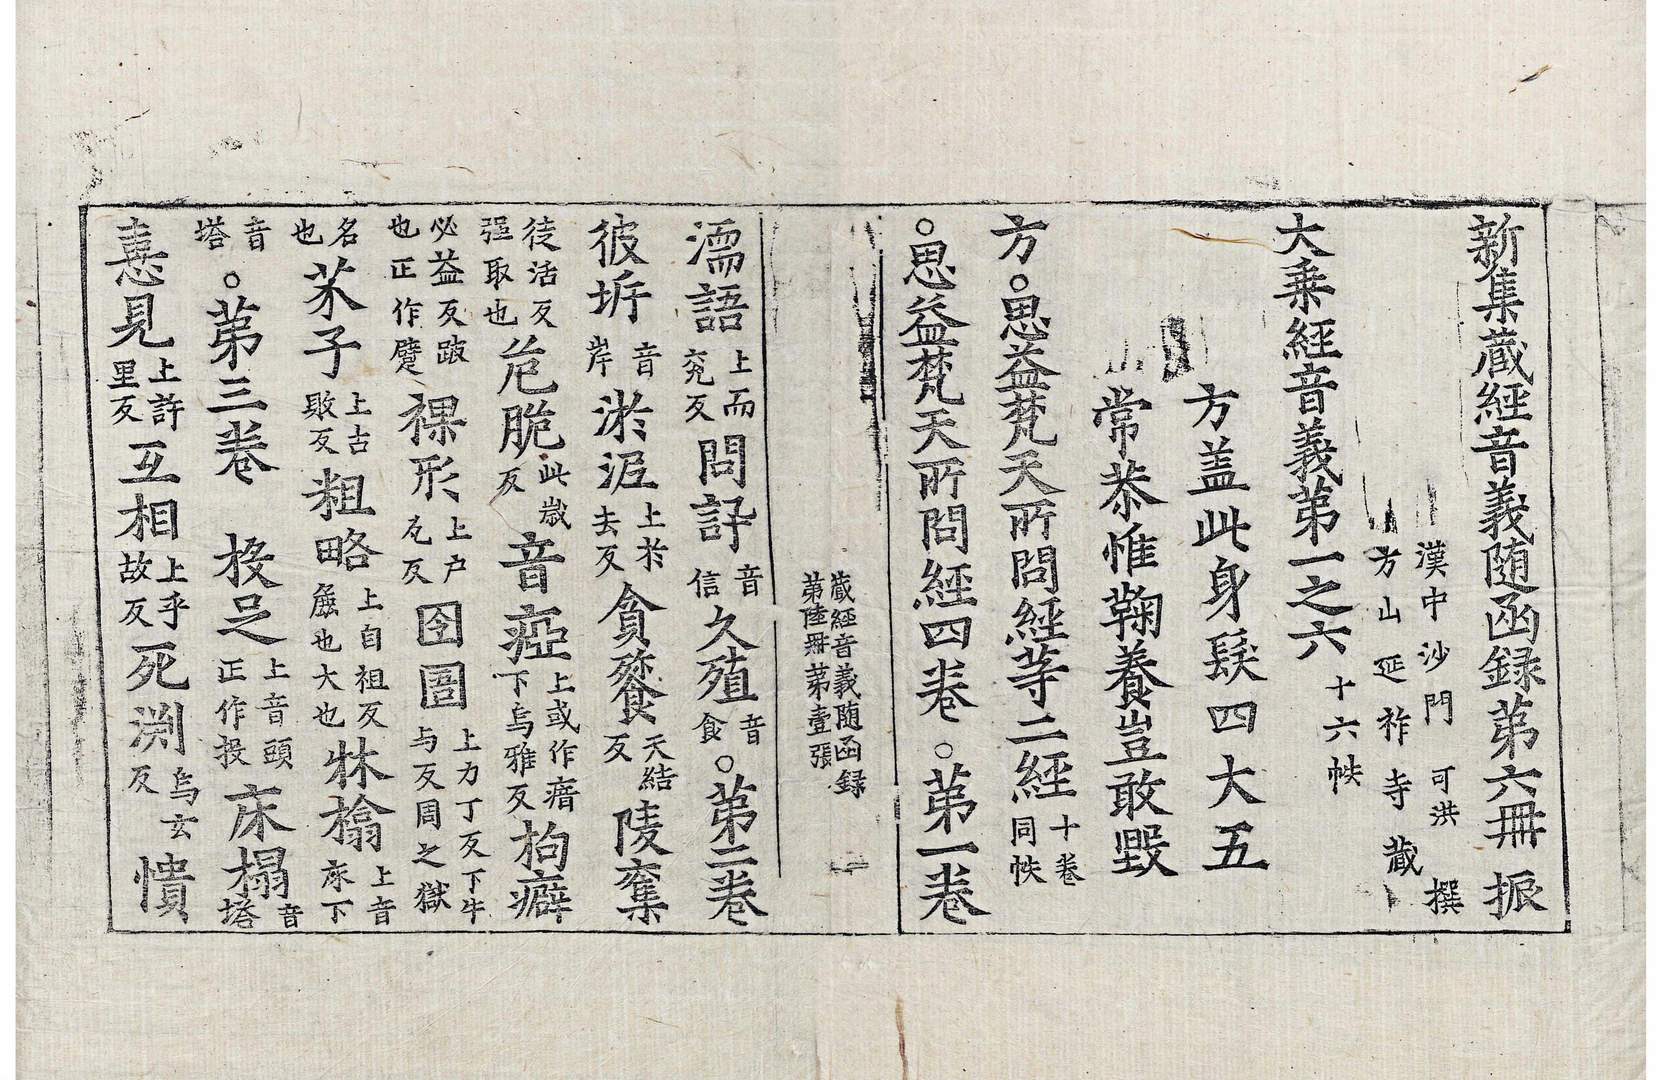 新集藏經音義随函録第六冊 振
漢中沙門 可洪 撰
方山延祚寺藏
大乗經音義第一之六 十六帙
方盖此身髮四大五
常恭惟鞠養豈敢毀
方○思益梵天所問經等二經 十卷同帙
○思益梵天所問經四卷 ○第一卷
藏經音義随函録
第陸冊第壹張
濡語 上而兖反 問訊 音信 久殖 音食 ○第二卷
彼坼 音岸 淤泥 上於去反 貪餮 天結反 陵奪
徒活反强取也 危脆 此歳反 音瘂 上或作瘖下烏雅反 枸癖
必益反跛也正作躄 裸形 上户瓦反 囹圄 上力丁反下牛与反周之獄
名也 芥子 上古敗反 粗略 上自祖反麁也大也 牀㯓 上音床下
音塔 ○第三卷 㧱足 上音頭正作投 床榻 音塔
憙見 上許里反 互相 上乎故反 死渕 烏玄反 憒